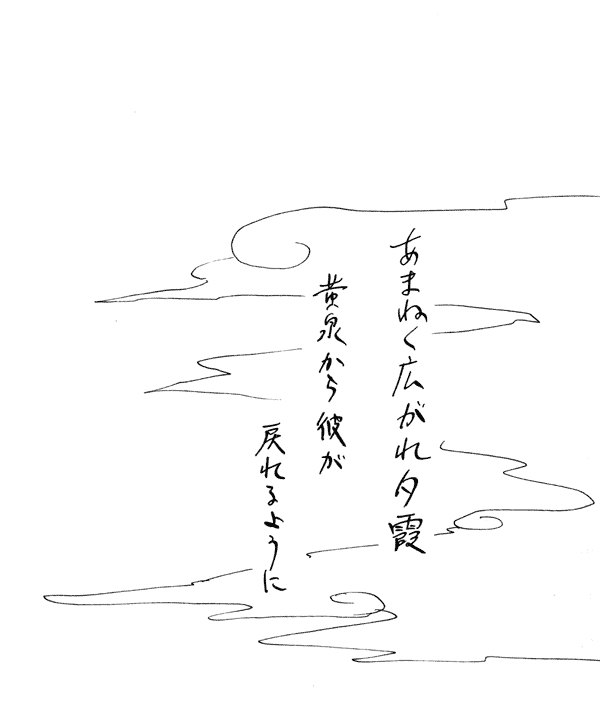 あまねく広がれ夕霞
黄泉から彼が
戻れるように